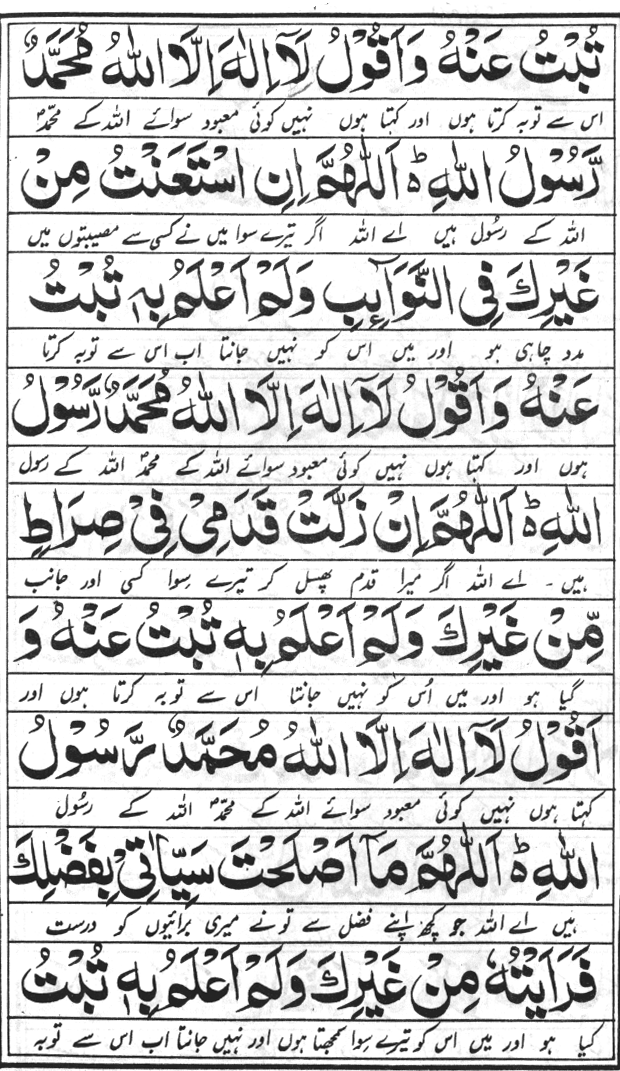 تُبْتُ عَنْهُ وَاَقُوْلُ لَآ اِلٰهَ اِلَّا اللهُ مُحَمَّدٌ
اس سے توبہ کرتا ہوں اور کہتا ہوں نہیں کوئی معبود سوائے اللہ کے محمّدؐ
رَّسُوْلُ اللهِ ؕ اَللّٰهُمَّ اِنِ اسْتَعَنْتُ مِنْ
اللہ کے رسُول ہیں اے اللہ اگر تیرے سوا میں نے کسی سے مصیبتوں میں
غَيْرِكَ فِي النَّوَآئِبِ وَلَمْ اَعْلَمُ بِهٖ تُبْتُ
مدد چاہی ہو اور میں اس کو نہیں جانتا اب اس سے توبہ کرتا
عَنْهُ وَاَقُوْلُ لَآ اِلٰهَ اِلَّا اللهُ مُحَمَّدٌ رَّسُوْلُ
ہوں اور کہتا ہوں نہیں کوئی معبود سوائے اللہ کے محمدؐ اللہ کے رسول
اللهِ ؕ اَللّٰهُمَّ اِنْ زَلَّتْ قَدَمِيْ فِيْ صِرَاطٍ
ہیں۔ اے اللہ اگر میرا قدم پھسل کر تیرے سِوا کسی اور جانب
مِّنْ غَيْرِكَ وَلَمْ اَعْلَمُ بِهٖ تُبْتُ عَنْهُ وَ
گیا ہو اور میں اُس کو نہیں جانتا اس سے توبہ کرتا ہوں اور
اَقُوْلُ لَآ اِلٰهَ اِلَّا اللهُ مُحَمَّدٌ رَّسُوْلُ
کہتا ہوں نہیں کوئی معبود سوائے اللہ کے محمّدؐ اللہ کے رسُول
اللهِ ؕ اَللّٰهُمَّ مَآ اَصْلَحْتَ سَيِّاٰتِيْ بِفَضْلِكَ
ہیں اے اللہ جو کچھ اپنے فضل سے تو نے میری برائیوں کو درست
فَرَاَيْتُهٗ مِنْ غَيْرِكَ وَلَمْ اَعْلَمُ بِهٖ تُبْتُ
کیا ہو اور میں اس کو تیرے سِوا سمجھتا ہوں اور نہیں جانتا اب اس سے توبہ